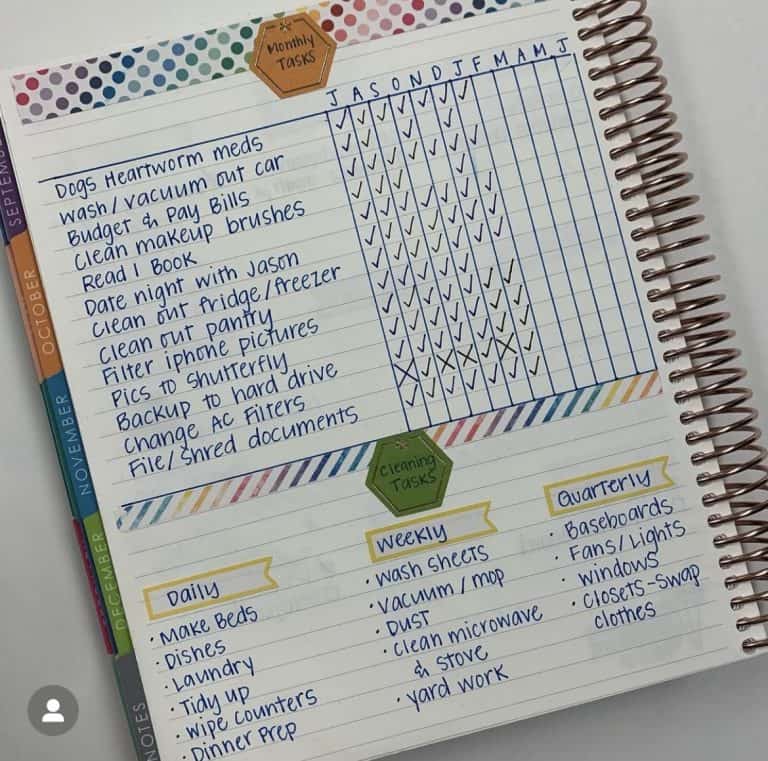 Monthly
Tasks
J A S O N D J F M A M J
Dogs Heartworm meds
wash/vacuum out car
Budget & Pay Bills
Clean makeup brushes
Read 1 Book
Date night with Jason
Clean out fridge/freezer
Clean out pantry
Filter iphone pictures
Pics to Shutterfly
Backup to hard drive
Change AC Filters
File/Shred documents
Cleaning
Tasks
Daily
• Make Beds
• Dishes
• Laundry
• Tidy up
• Wipe Counters
• Dinner Prep
Weekly
• Wash sheets
• Vacuum/mop
• Dust
• Clean microwave
& stove
• yard work
Quarterly
• Baseboards
• Fans/Lights
• Windows
• Closets-swap
clothes
SEPTEMBER
OCTOBER
NOVEMBER
DECEMBER
NOTES